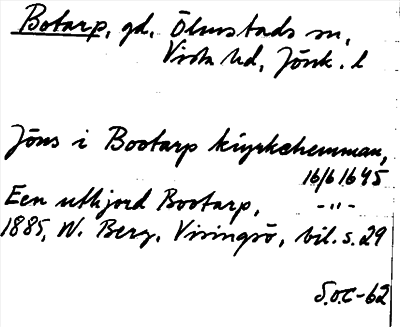 Botarp, gd, Ölmstads sn,
Vista hd, Jönk. l
Jöns i Bootarp kyrkehemman,
16/6 1645
Een utkjord Bootarp, -"-
1885, W. Berg, Visingsö, bil. s. 29
S.O.C-62